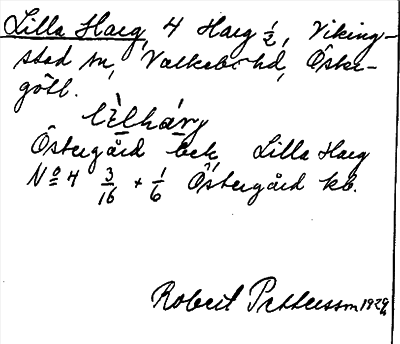 Lilla Harg, 4 Harg ½, Viking-
stad sn, Valkebo hd, Öster-
götl.
lìlhárj
Östergård bek, Lilla Harg
Nº 4 3/16 + 1/6 Östergård kb.
Robert Pettersson 1929